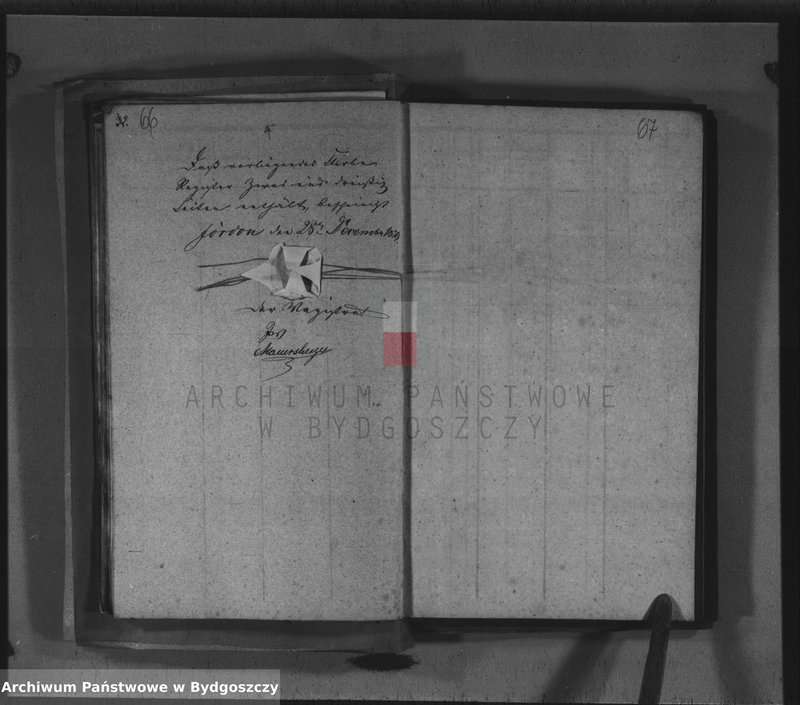 32. 66
Daß vorliegendes Sterbe
Register Zwei und dreißig
Seiten enthält, bescheinigt
Fordon den 28t. December
Der Magistrat
67
ARCHIWUM PAŃSTWOWE
W BYDGOSZCZY
Archiwum Państwowe w Bydgoszczy